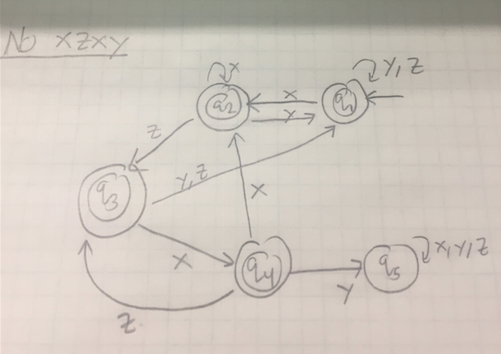 No xzxy
x
y,z
q2
x
q1
y
z
y,z
q3
x
x
q4
q5
x,y,z
y
z